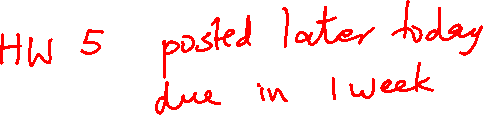 HW 5 posted later today
due in 1 week